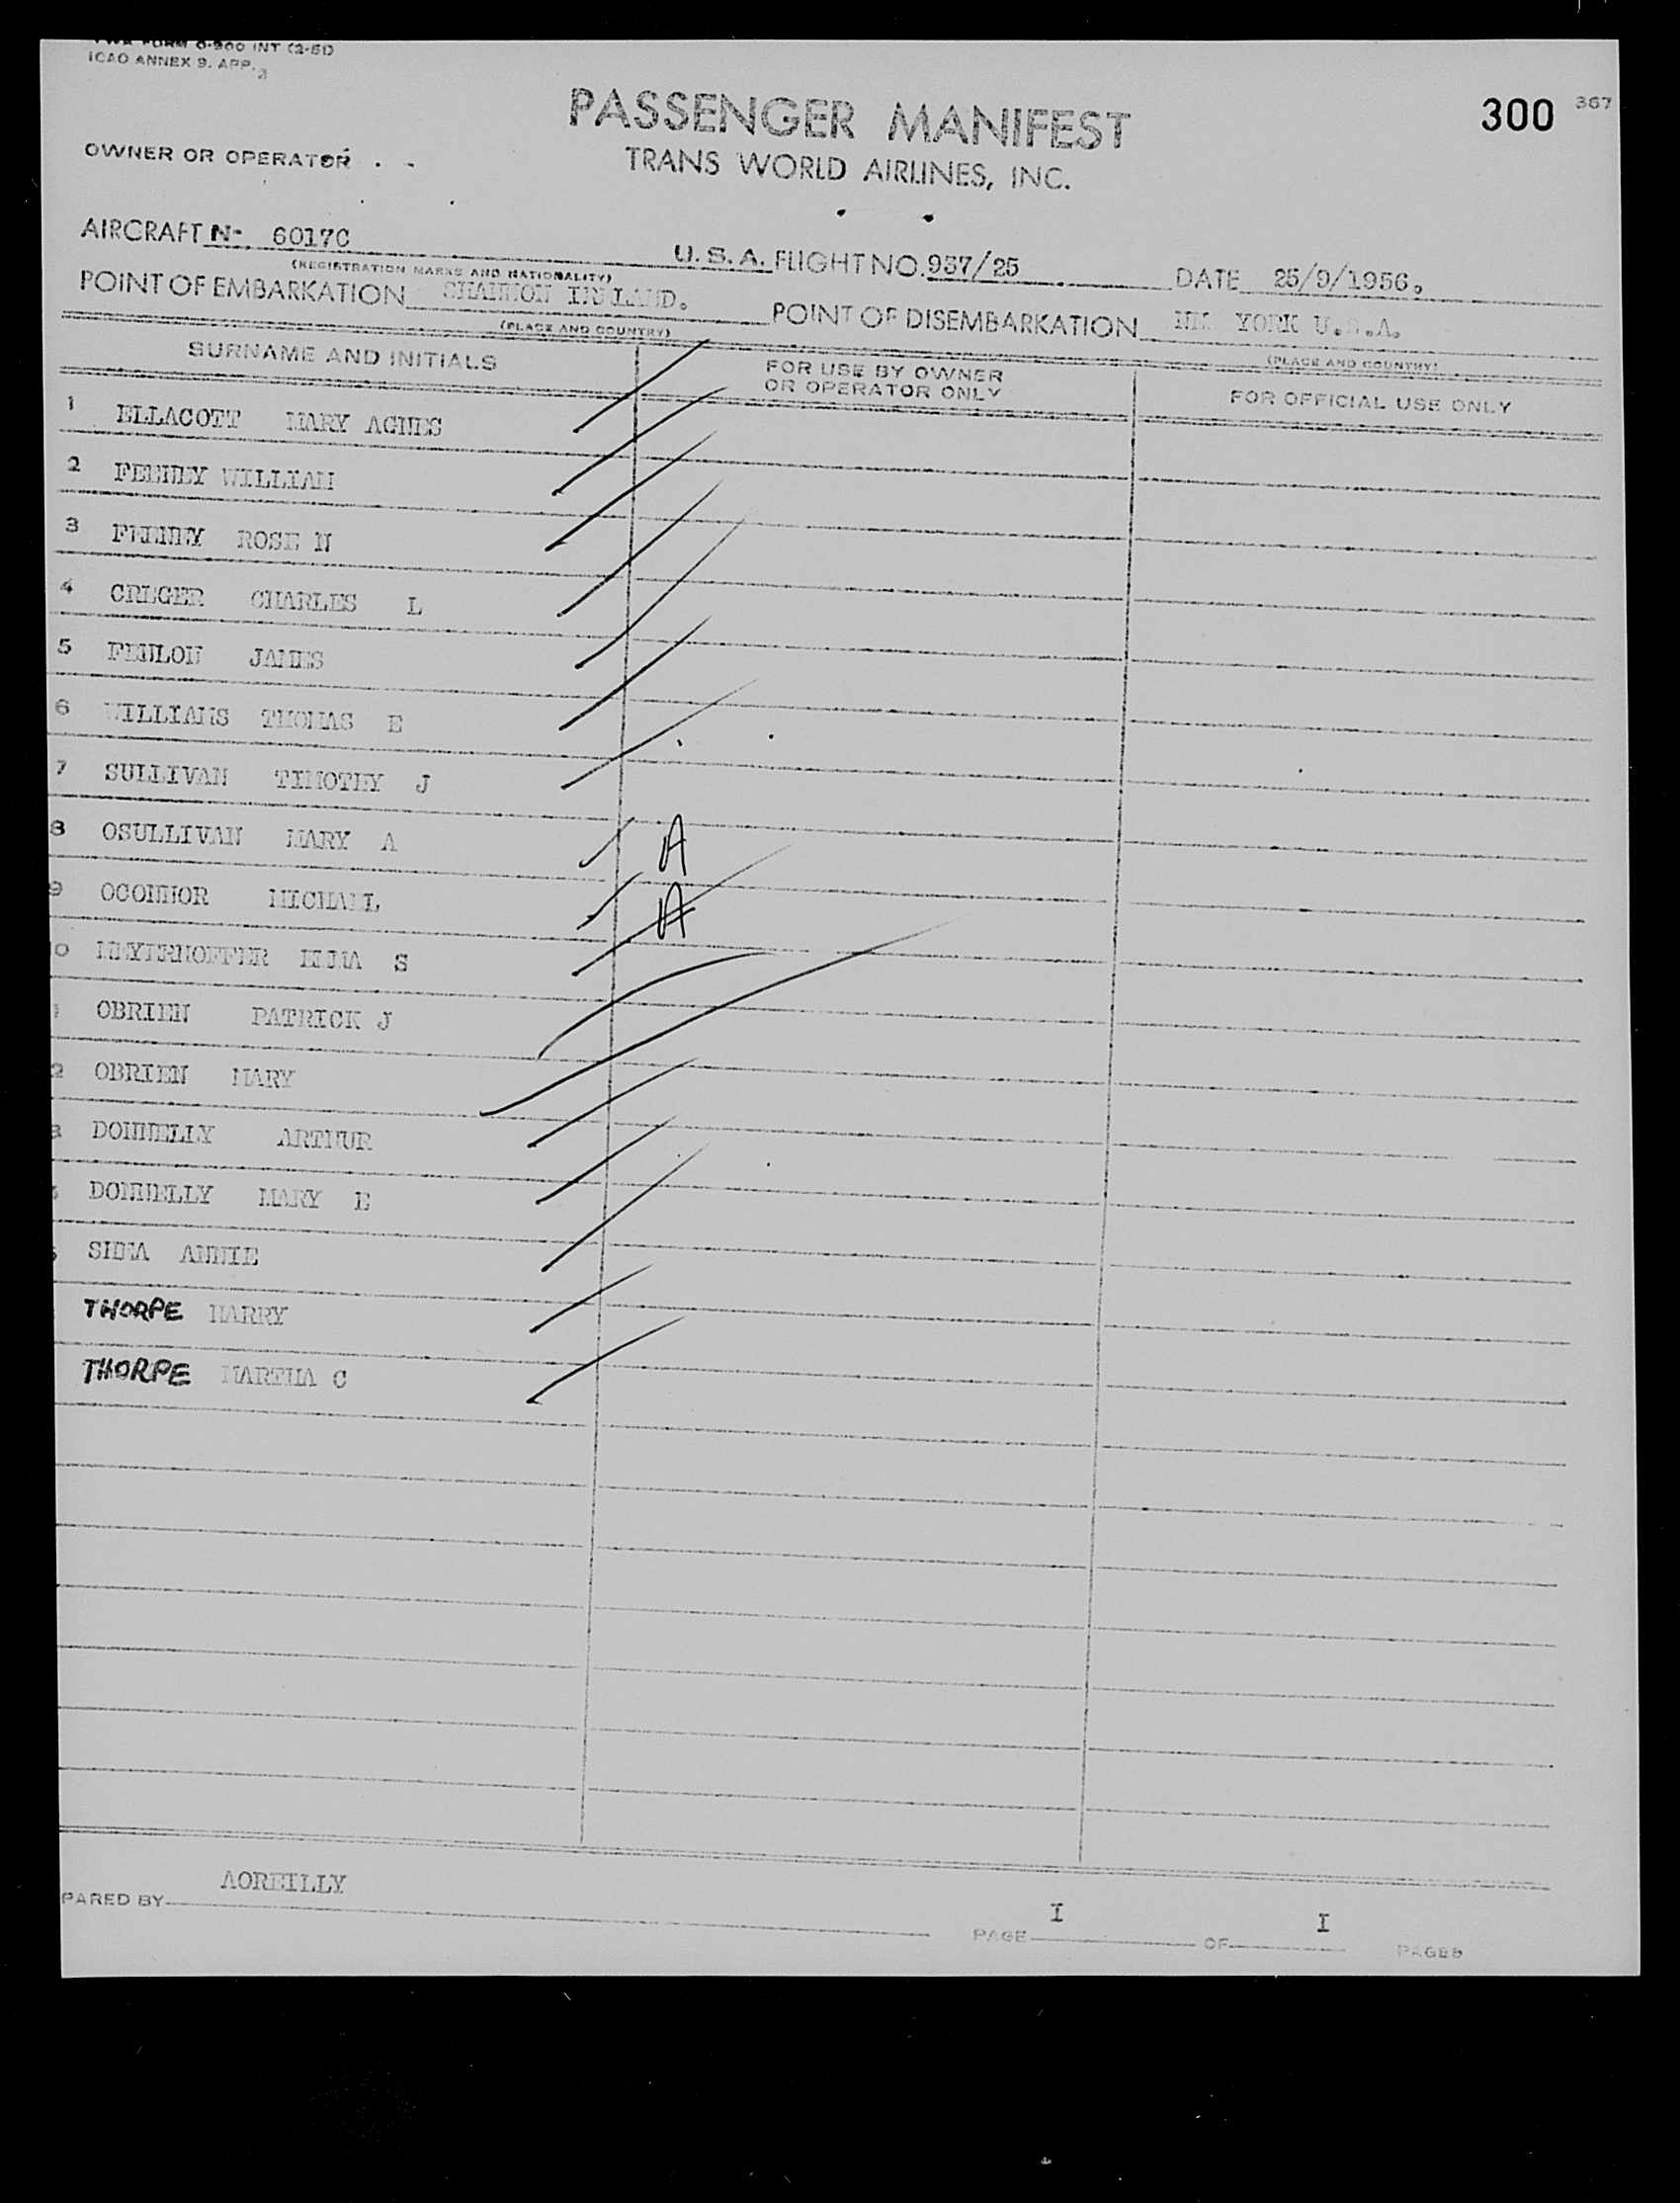 TWA FORM O-900 INT (2-51)
ICAO ANNEX 9. APP. 3
PASSENGER MANIFEST 300 367
OWNER OR OPERATOR TRANS WORLD AIRLINES, INC.
AIRCRAFT N- 6017C U. S. A. FLIGHT NO. 957/25 DATE 25/9/1956.
(REGISTRATION MARKS AND NATIONALITY)
POINT OF EMBARKATION SHANNON IRELAND. POINT OF DISEMBARKATION NEW YORK U.S.A.
(PLACE AND COUNTRY) (PLACE AND COUNTRY)
SURNAME AND INITIALS FOR USE BY OWNER OR OPERATOR ONLY FOR OFFICIAL USE ONLY
1 ELLACOTT MARY AGNES
2 FEENEY WILLIAM
3 FEENEY ROSE N
4 CREGER CHARLES L
5 FENLON JAMES
6 WILLIAMS THOMAS E
7 SULLIVAN TIMOTHY J
8 OSULLIVAN MARY A A
9 OCONNOR MICHAEL A
0 MEYERHOFFER EMMA S
OBRIEN PATRICK J
2 OBRIEN MARY
3 DONNELLY ARTHUR
DONNELLY MARY E
ANNIE
THORPE HARRY
THORPE MARTHA C
AOREILLY
PARED BY
PAGE I OF I PAGES